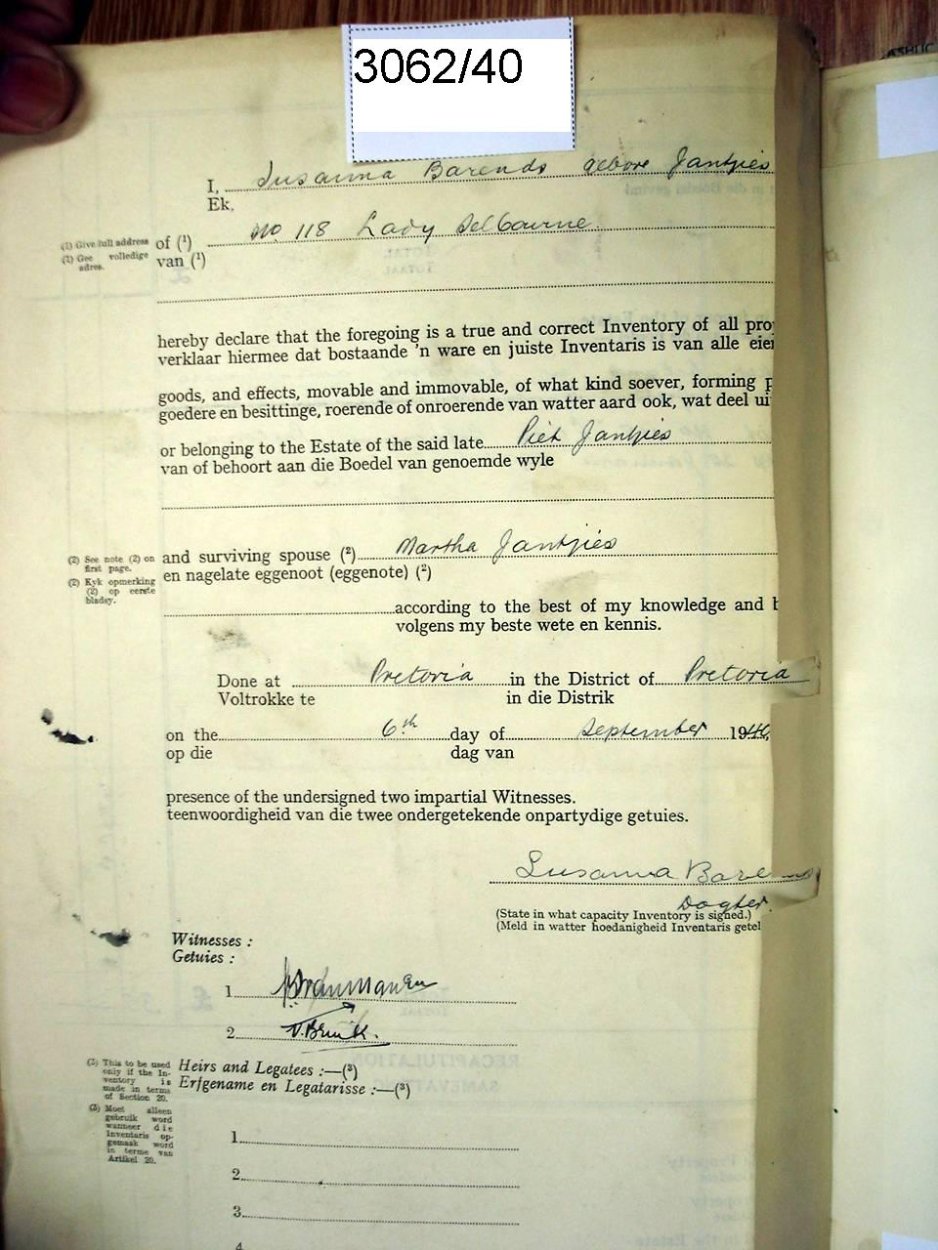 3062/40
I, Susanna Barends gebore Jantjies
Ek,
(1) Give full address of (1) No 118 Lady Selbourne.
(1) Gee volledige adres. van (1)
hereby declare that the foregoing is a true and correct Inventory of all pro
verklaar hiermee dat bostaande 'n ware en juiste Inventaris is van alle eie
goods, and effects, movable and immovable, of what kind soever, forming p
goedere en besittinge, roerende of onroerende van watter aard ook, wat deel ui
or belonging to the Estate of the said late Piet Jantjies
van of behoort aan die Boedel van genoemde wyle
(2) See note (2) on first page. and surviving spouse (2) Martha Jantjies
(2) Kyk opmerking (2) op eerste bladsy. en nagelate eggenoot (eggenote) (2)
according to the best of my knowledge and b
volgens my beste wete en kennis.
Done at Pretoria in the District of Pretoria
Voltrokke te in die Distrik
on the 6th day of September 1940,
op die dag van
presence of the undersigned two impartial Witnesses.
teenwoordigheid van die twee ondergetekende onpartydige getuies.
Susanna Barends
Dogter.
(State in what capacity Inventory is signed.)
(Meld in watter hoedanigheid Inventaris getel
Witnesses :
Getuies :
1
2
(3) This to be used only if the Inventory is made in terms of Section 20.
Heirs and Legatees :—(3)
Erfgename en Legatarisse :—(3)
(3) Moet alleen gebruik word wanneer die Inventaris opgemaak word in terme van Artikel 20.
1
2
3
4